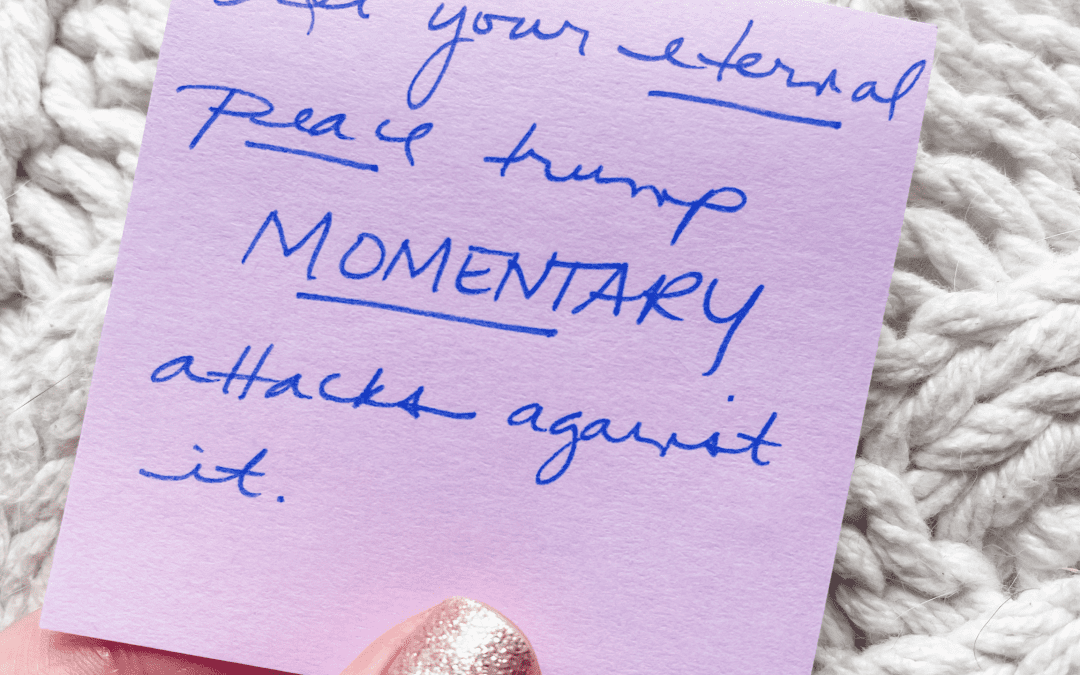 your eternal
peace trump
MOMENTARY
attacks against
it.